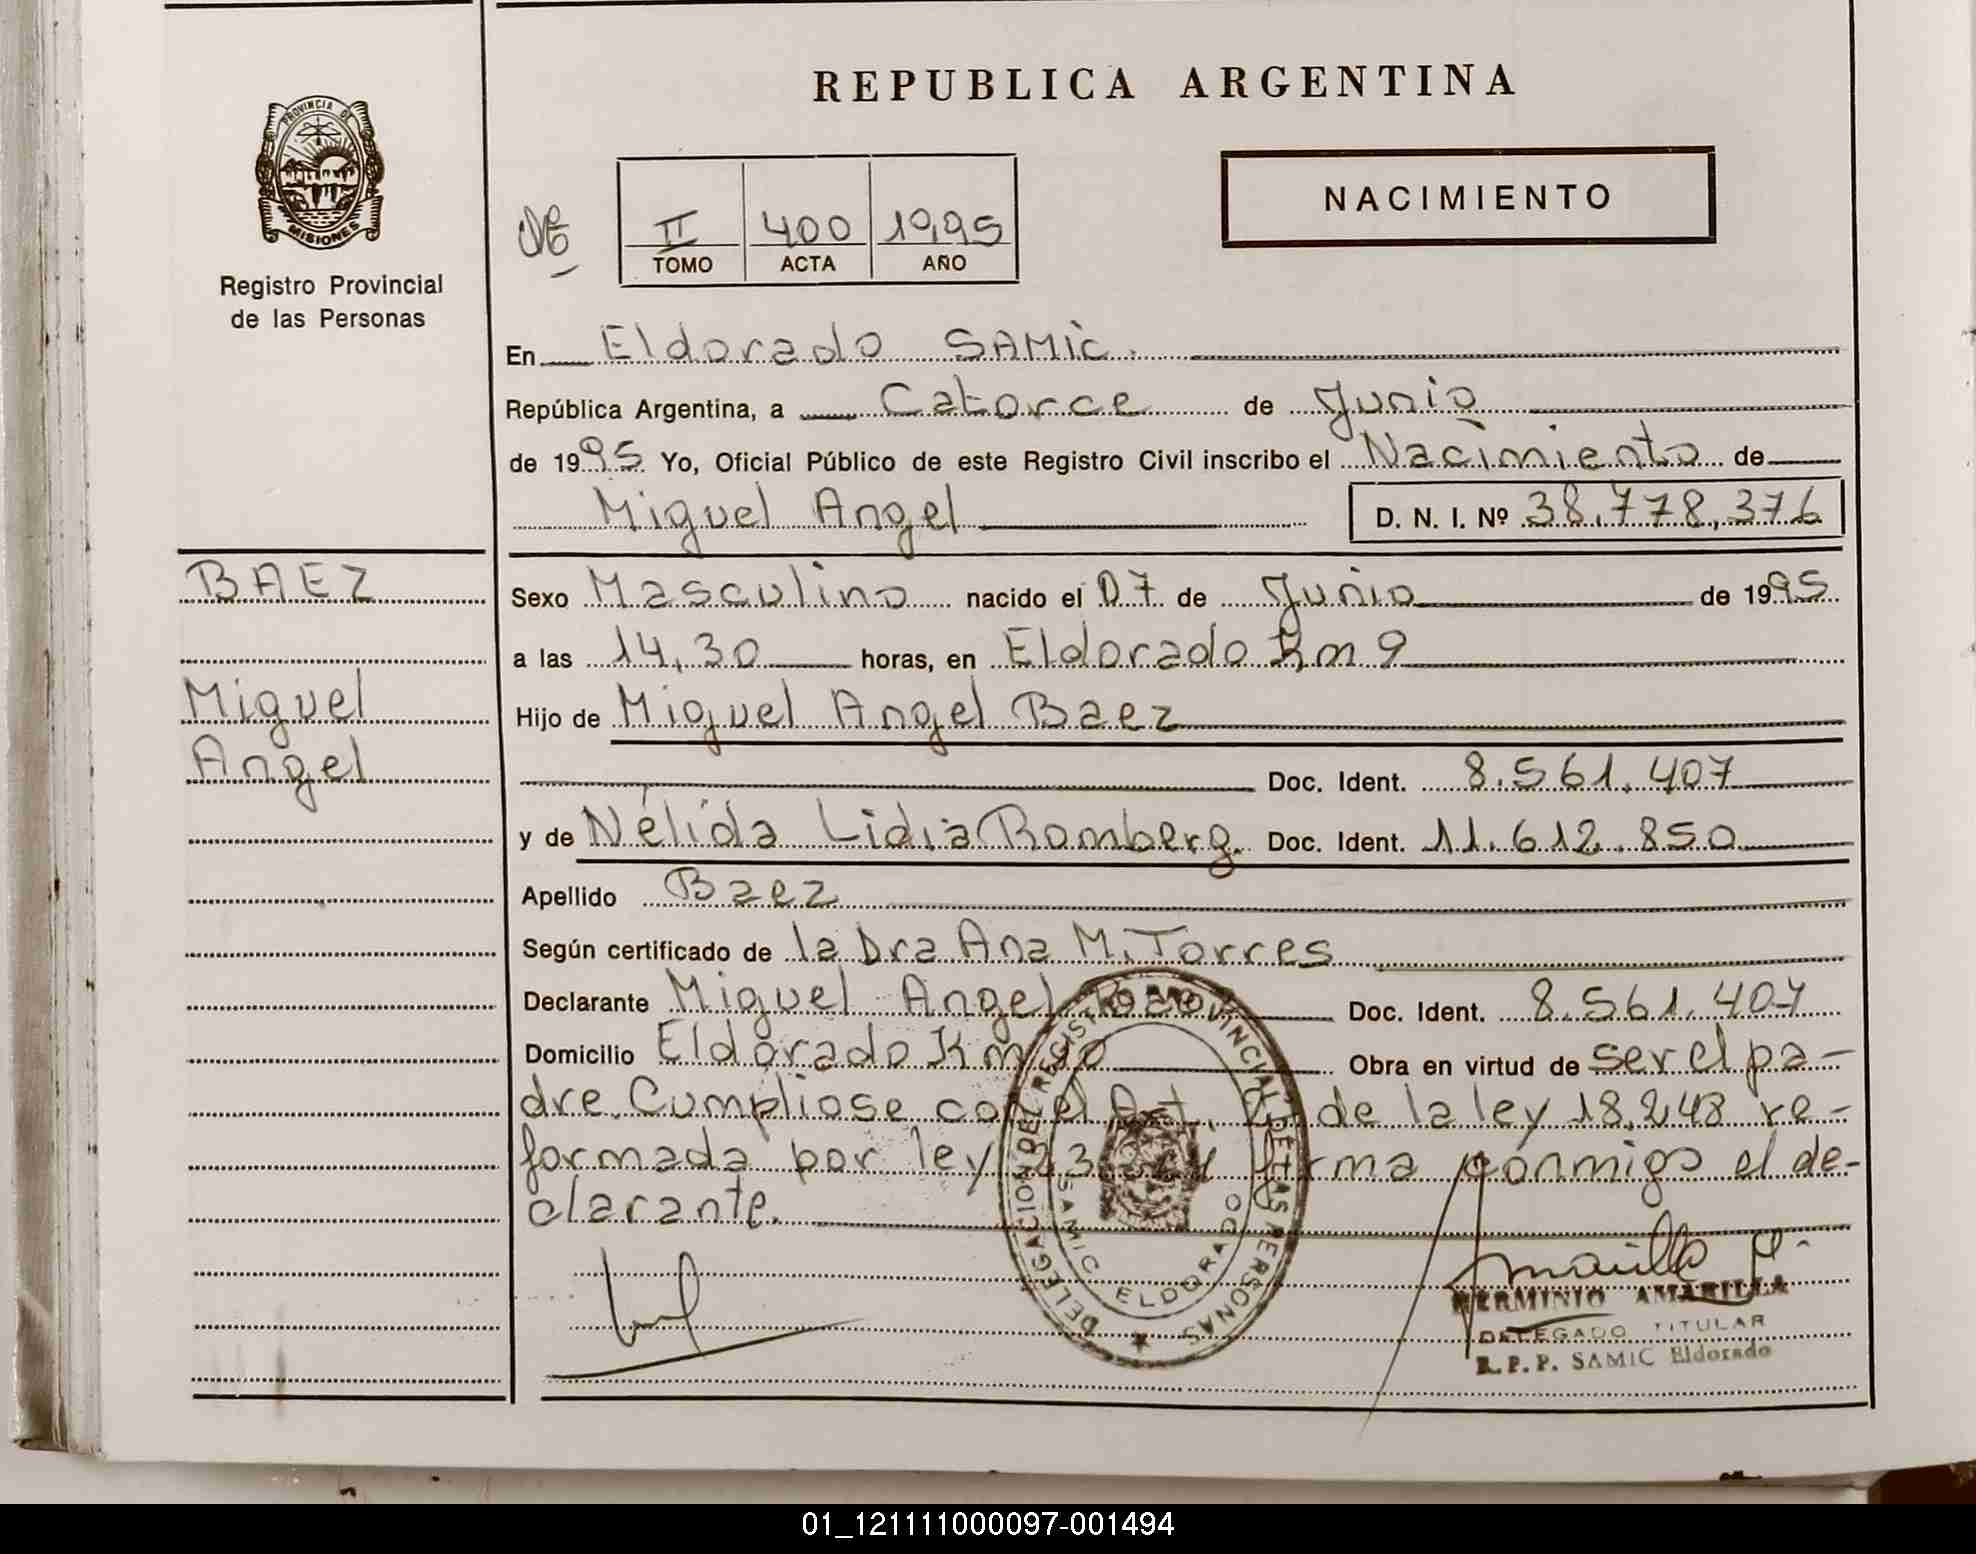 REPUBLICA ARGENTINA
PROVINCIA DE
MISIONES
Registro Provincial
de las Personas
NACIMIENTO
II 400 1995
TOMO ACTA AÑO
En Eldorado SAMic.
República Argentina, a Catorce de Junio
de 1995 Yo, Oficial Público de este Registro Civil inscribo el Nacimiento de
Miguel Angel D. N. I. Nº 38.778,376
BAEZ
Miguel
Angel
Sexo Masculino nacido el 07 de Junio de 1995
a las 14,30 horas, en Eldorado Km 9
Hijo de Miguel Angel Baez
Doc. Ident. 8.561.407
y de Nélida Lidia Romberg. Doc. Ident. 11.612.850
Apellido Baez
Según certificado de la Dra Ana M. Torres
Declarante Miguel Angel Doc. Ident. 8.561.407
Domicilio Eldorado Km Obra en virtud de ser el pa-
dre. Cumpliose con el Art. de la ley 18.248 re-
formada por ley firma conmigo el de-
clarante.
DELEGACION DEL REGISTRO PROVINCIAL DE LAS PERSONAS
SAMIC ELDORADO
HERMINIO AMARILLA
DELEGADO TITULAR
R. P. P. SAMIC Eldorado
01_121111000097-001494